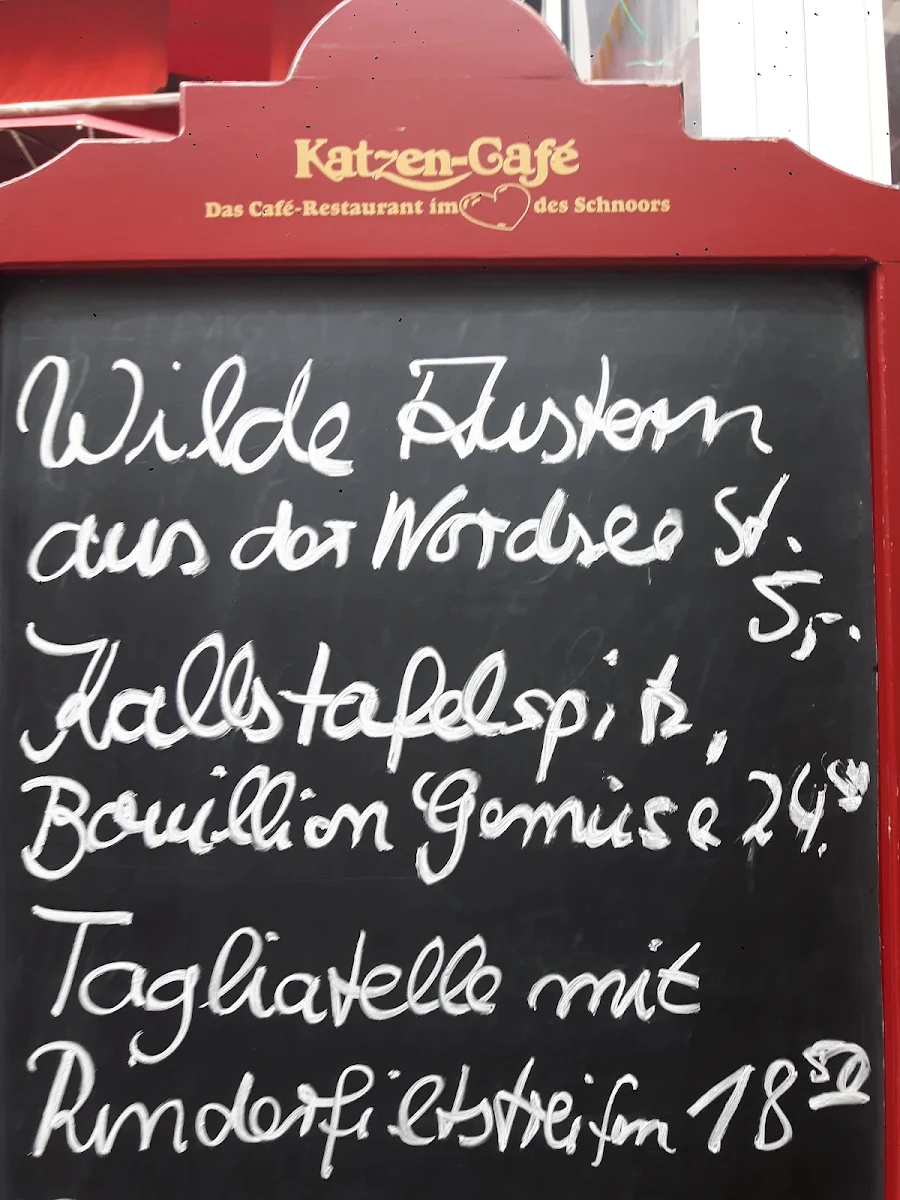 Katzen-Café
Das Café-Restaurant im des Schnoors
Wilde Austern
aus der Nordsee St.
5,-.
Kalbstafelspitz,
Bouillion Gemüse 24,50
Tagliatelle mit
Rinderfiletstreifen 18 50